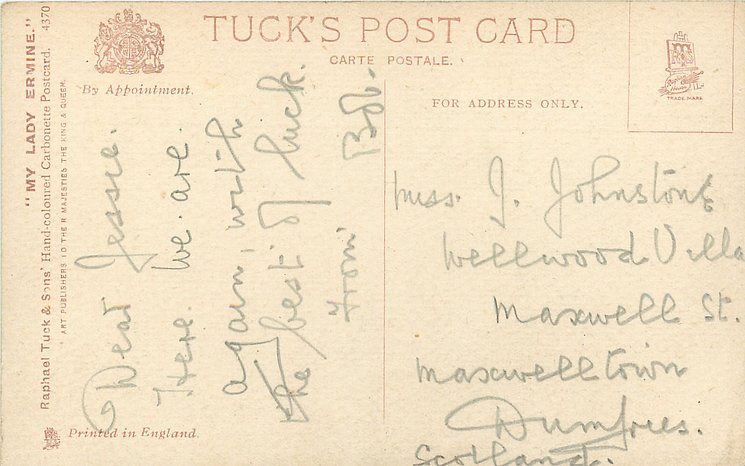 "MY LADY ERMINE."
Raphael Tuck & Sons' Hand-coloured Carbonette Postcard. 4370
ART PUBLISHERS TO THEIR MAJESTIES THE KING & QUEEN.
TUCK'S POST CARD
CARTE POSTALE.
By Appointment.
FOR ADDRESS ONLY.
TRADE MARK
Dear Jessie.
Here we are
again, with
the best of luck.
From Bob.
Miss. J. Johnstone
Wellwood Villa
Maxwell St.
Maxwelltown
Dumfries.
Scotland.
Printed in England.